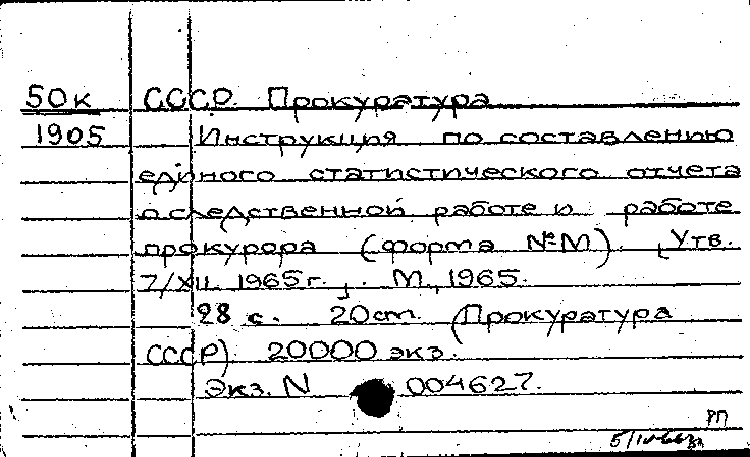 50к СССР. Прокуратура
1905 Инструкция по составлению
единого статистического отчета
о следственной работе и работе
прокурора (форма №М). [Утв.
7/XII 1965г.]. М., 1965.
28 с. 20cm. (Прокуратура
СССР). 20000 экз.
Экз. N 004627.
РП